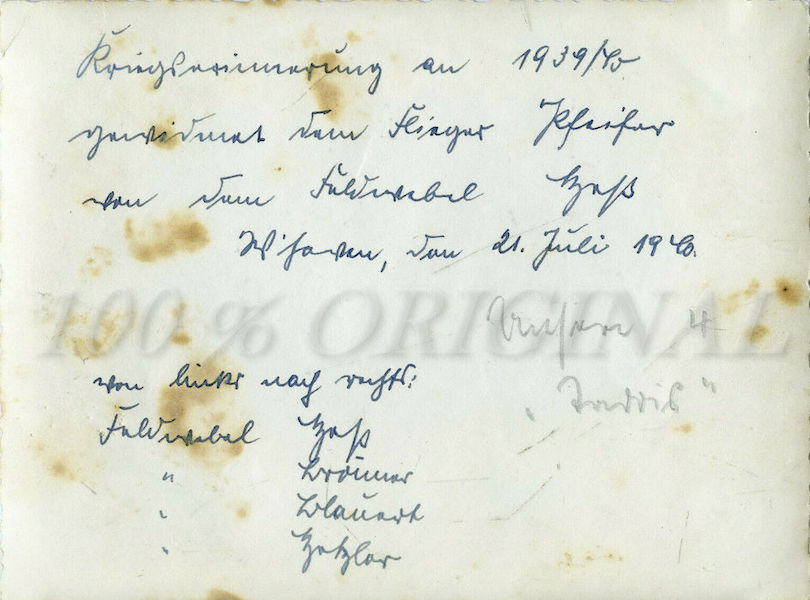 Kriegserinnerung an 1939/40
gewidmet dem Flieger Pfeifer
von dem Feldwebel Heß
W'haven, den 21. Juli 1940.
100 % ORIGINAL
Unsere 4
von links nach rechts:
Feldwebel Heß
" Brönner
" Blauert
" Hetzler